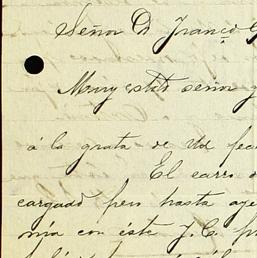 Señor D Franco
Muy estdo señor
á la grata de Ud fec
El carro
cargado pero hasta aye
mia con éste J.C. p